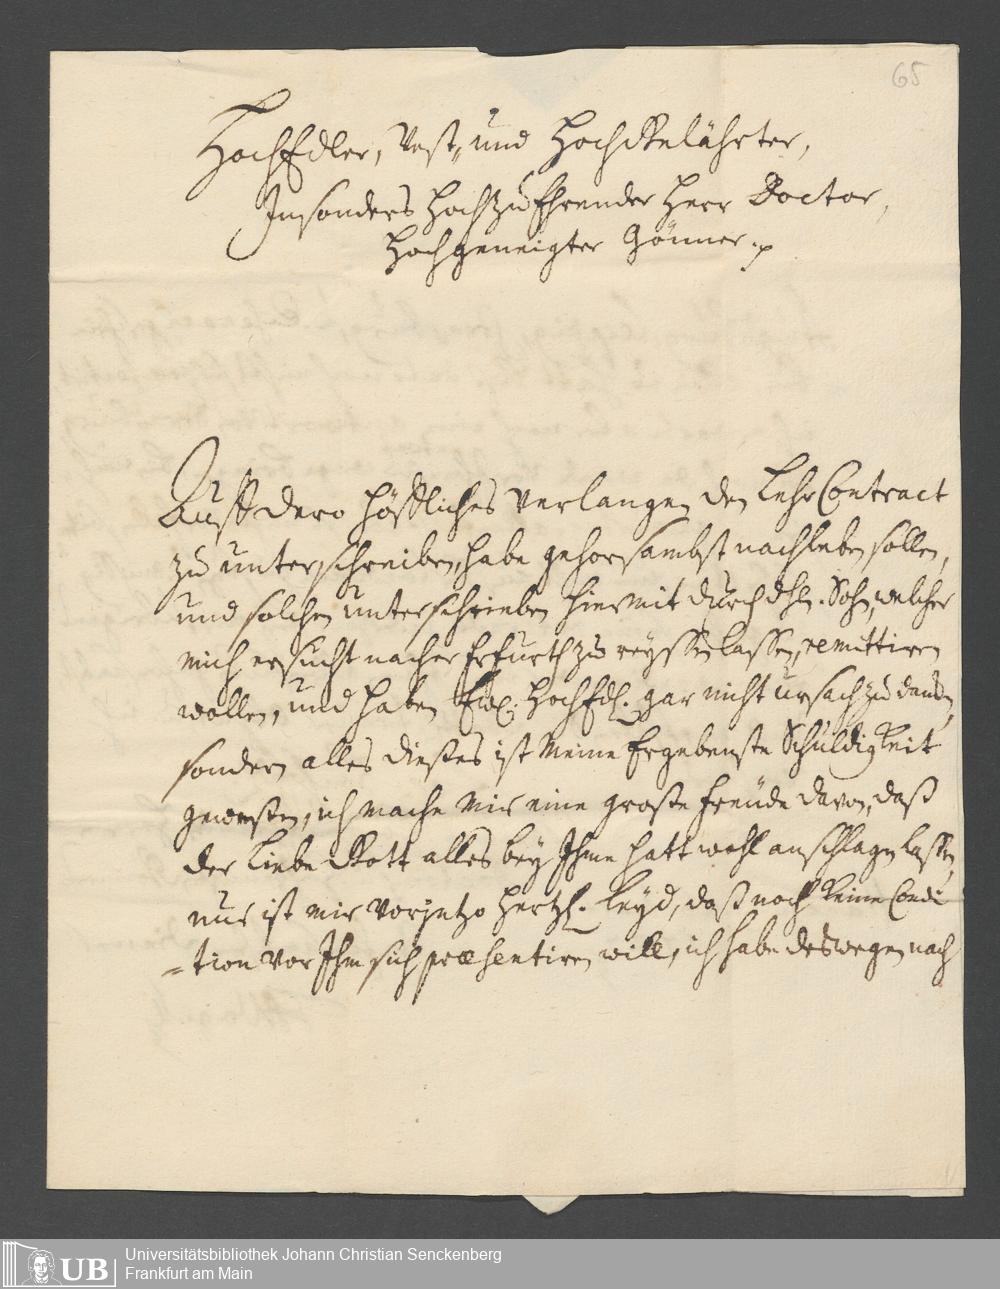 65
HochEdler, Vest, und HochGelährter,
Insonders HochzuEhrender Herr Doctor,
Hochgeneigter Gönner.
Auff dero höffliches verlangen den LehrContract
zu unterschreiben, habe gehorsambst nachleben sollen,
und solchen unterschrieben hiermit durch dhl. Sohn, welcher
mich ersucht nacher Erfurth zu reyssen lassen, remittiren
wollen, und haben Ew. HochEdl. gar nicht ursach zu dancken,
sondern alles dießes ist meine Ergebenste Schuldigkeit
geweßen, ich mache mir eine große freude davon, daß
der liebe Gott alles bey Ihme hatt wohl anschlagen lassen,
nur ist mir vorjetzo hertzl. leyd, daß noch keine Condi
=tion vor Ihm sich præsentiren will, ich habe deswegen nach
UB
Universitätsbibliothek Johann Christian Senckenberg
Frankfurt am Main